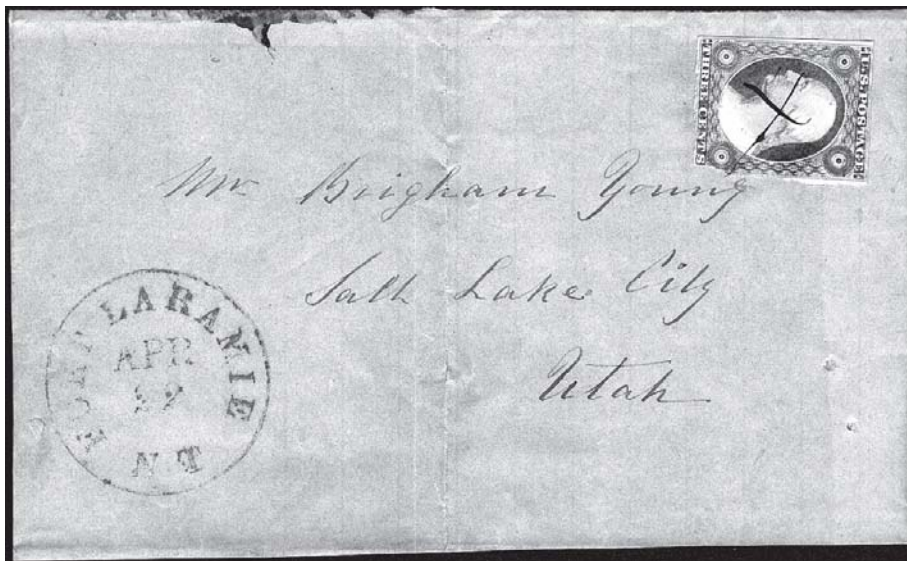 U.S. POSTAGE
THREE CENTS
Mr Brigham Young
Salt Lake City
Utah
FORT LARAMIE
APR
N T